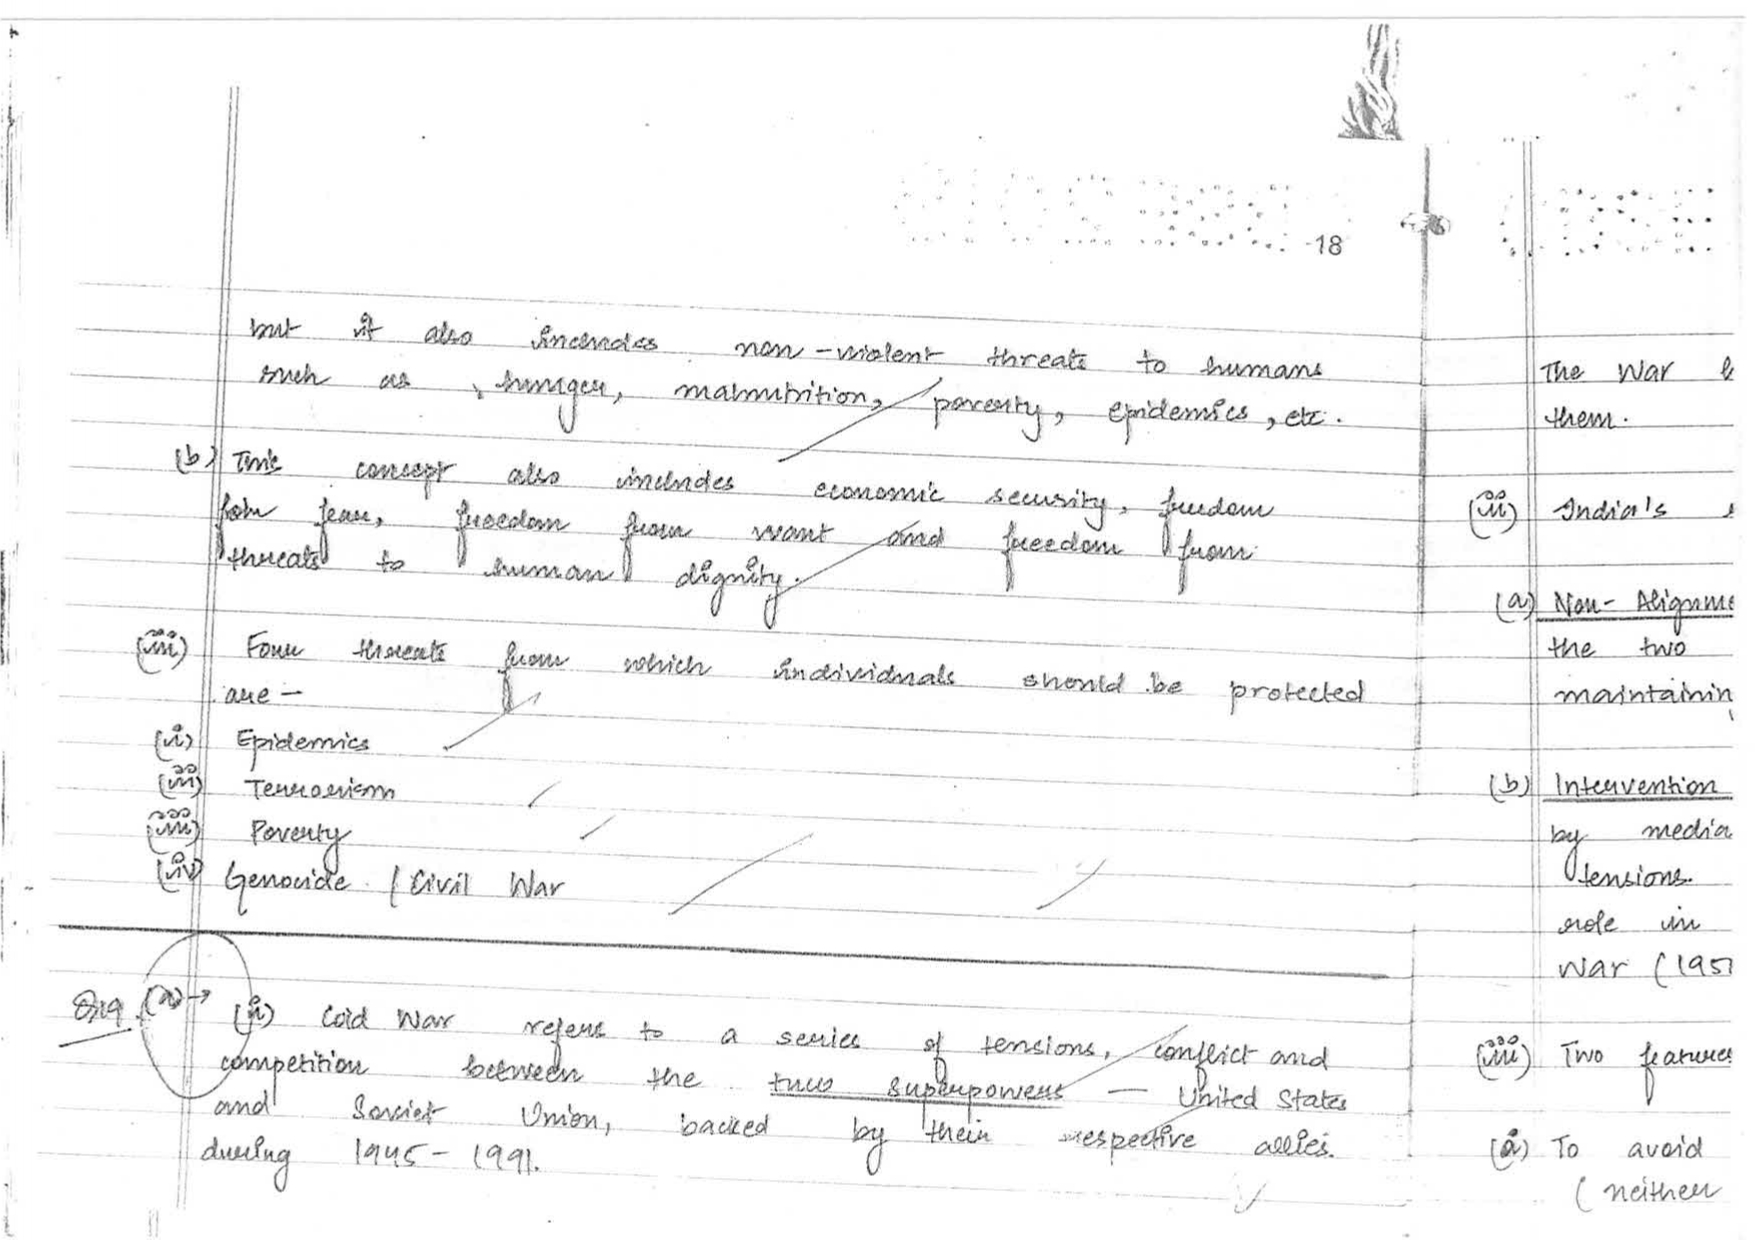 18
but it also includes non-violent threats to humans
such as hunger, malnutrition, poverty, epidemics, etc.
(b) This concept also includes economic security, freedom
fom fear, freedom from want and freedom from
threats to human dignity.
(iii) Four threats from which individuals should be protected
are —
(i) Epidemics
(ii) Terrorism
(iii) Poverty
(iv) Genocide / Civil War
Q19 (a)→ (i) Cold War refers to a series of tensions, conflict and
competition between the two superpowers — United States
and Soviet Union, backed by their respective allies.
during 1945-1991.
The War
them.
(ii) India's
(a) Non-Alignme
the two
maintainin
(b) Intervention
by media
tensions.
role in
War (195
(iii) Two features
(a) To avoid
(neither